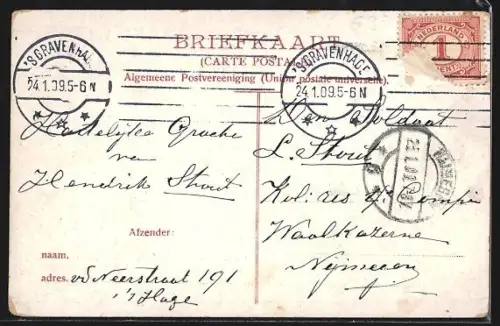 BRIEFKAART
(CARTE POSTALE)
Algemeene Postvereeniging (Union postale universelle).
'S GRAVENHAGE
24.1.09.5-6 N
'S GRAVENHAGE
24.1.09.5-6 N
NEDERLAND
1
CENT
Hartelijke Groete
van
Hendrik Stout
Afzender:
naam.
adres. v/d Neerstraat 191
's Hage
Den Soldaat
L. Stout
4e Compie
Waalkazerne
Nijmegen